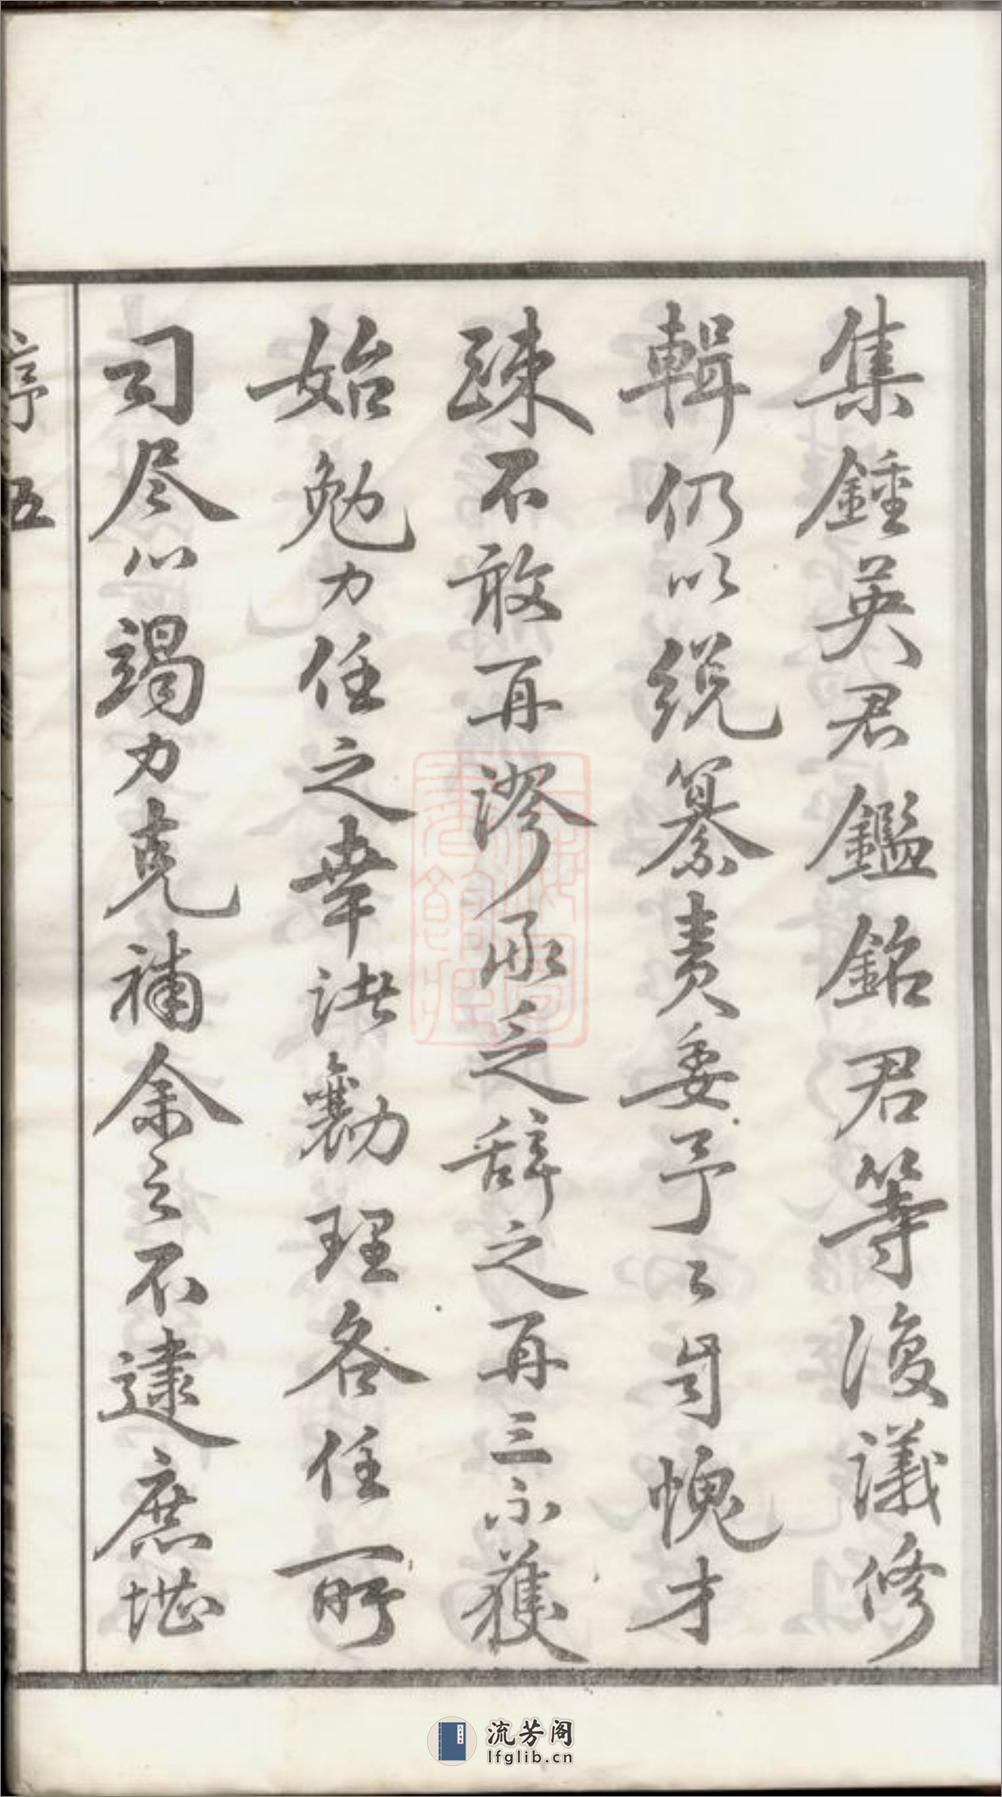 集鍾英君鑑銘君等復議修
輯仍以總纂責委予々自愧才
疎不敢再謬承之辭之再三不獲
始勉力任之幸諸勷理各任所
司尽心竭力克補余之不逮庶堪
序 五
流芳阁
lfglib.cn